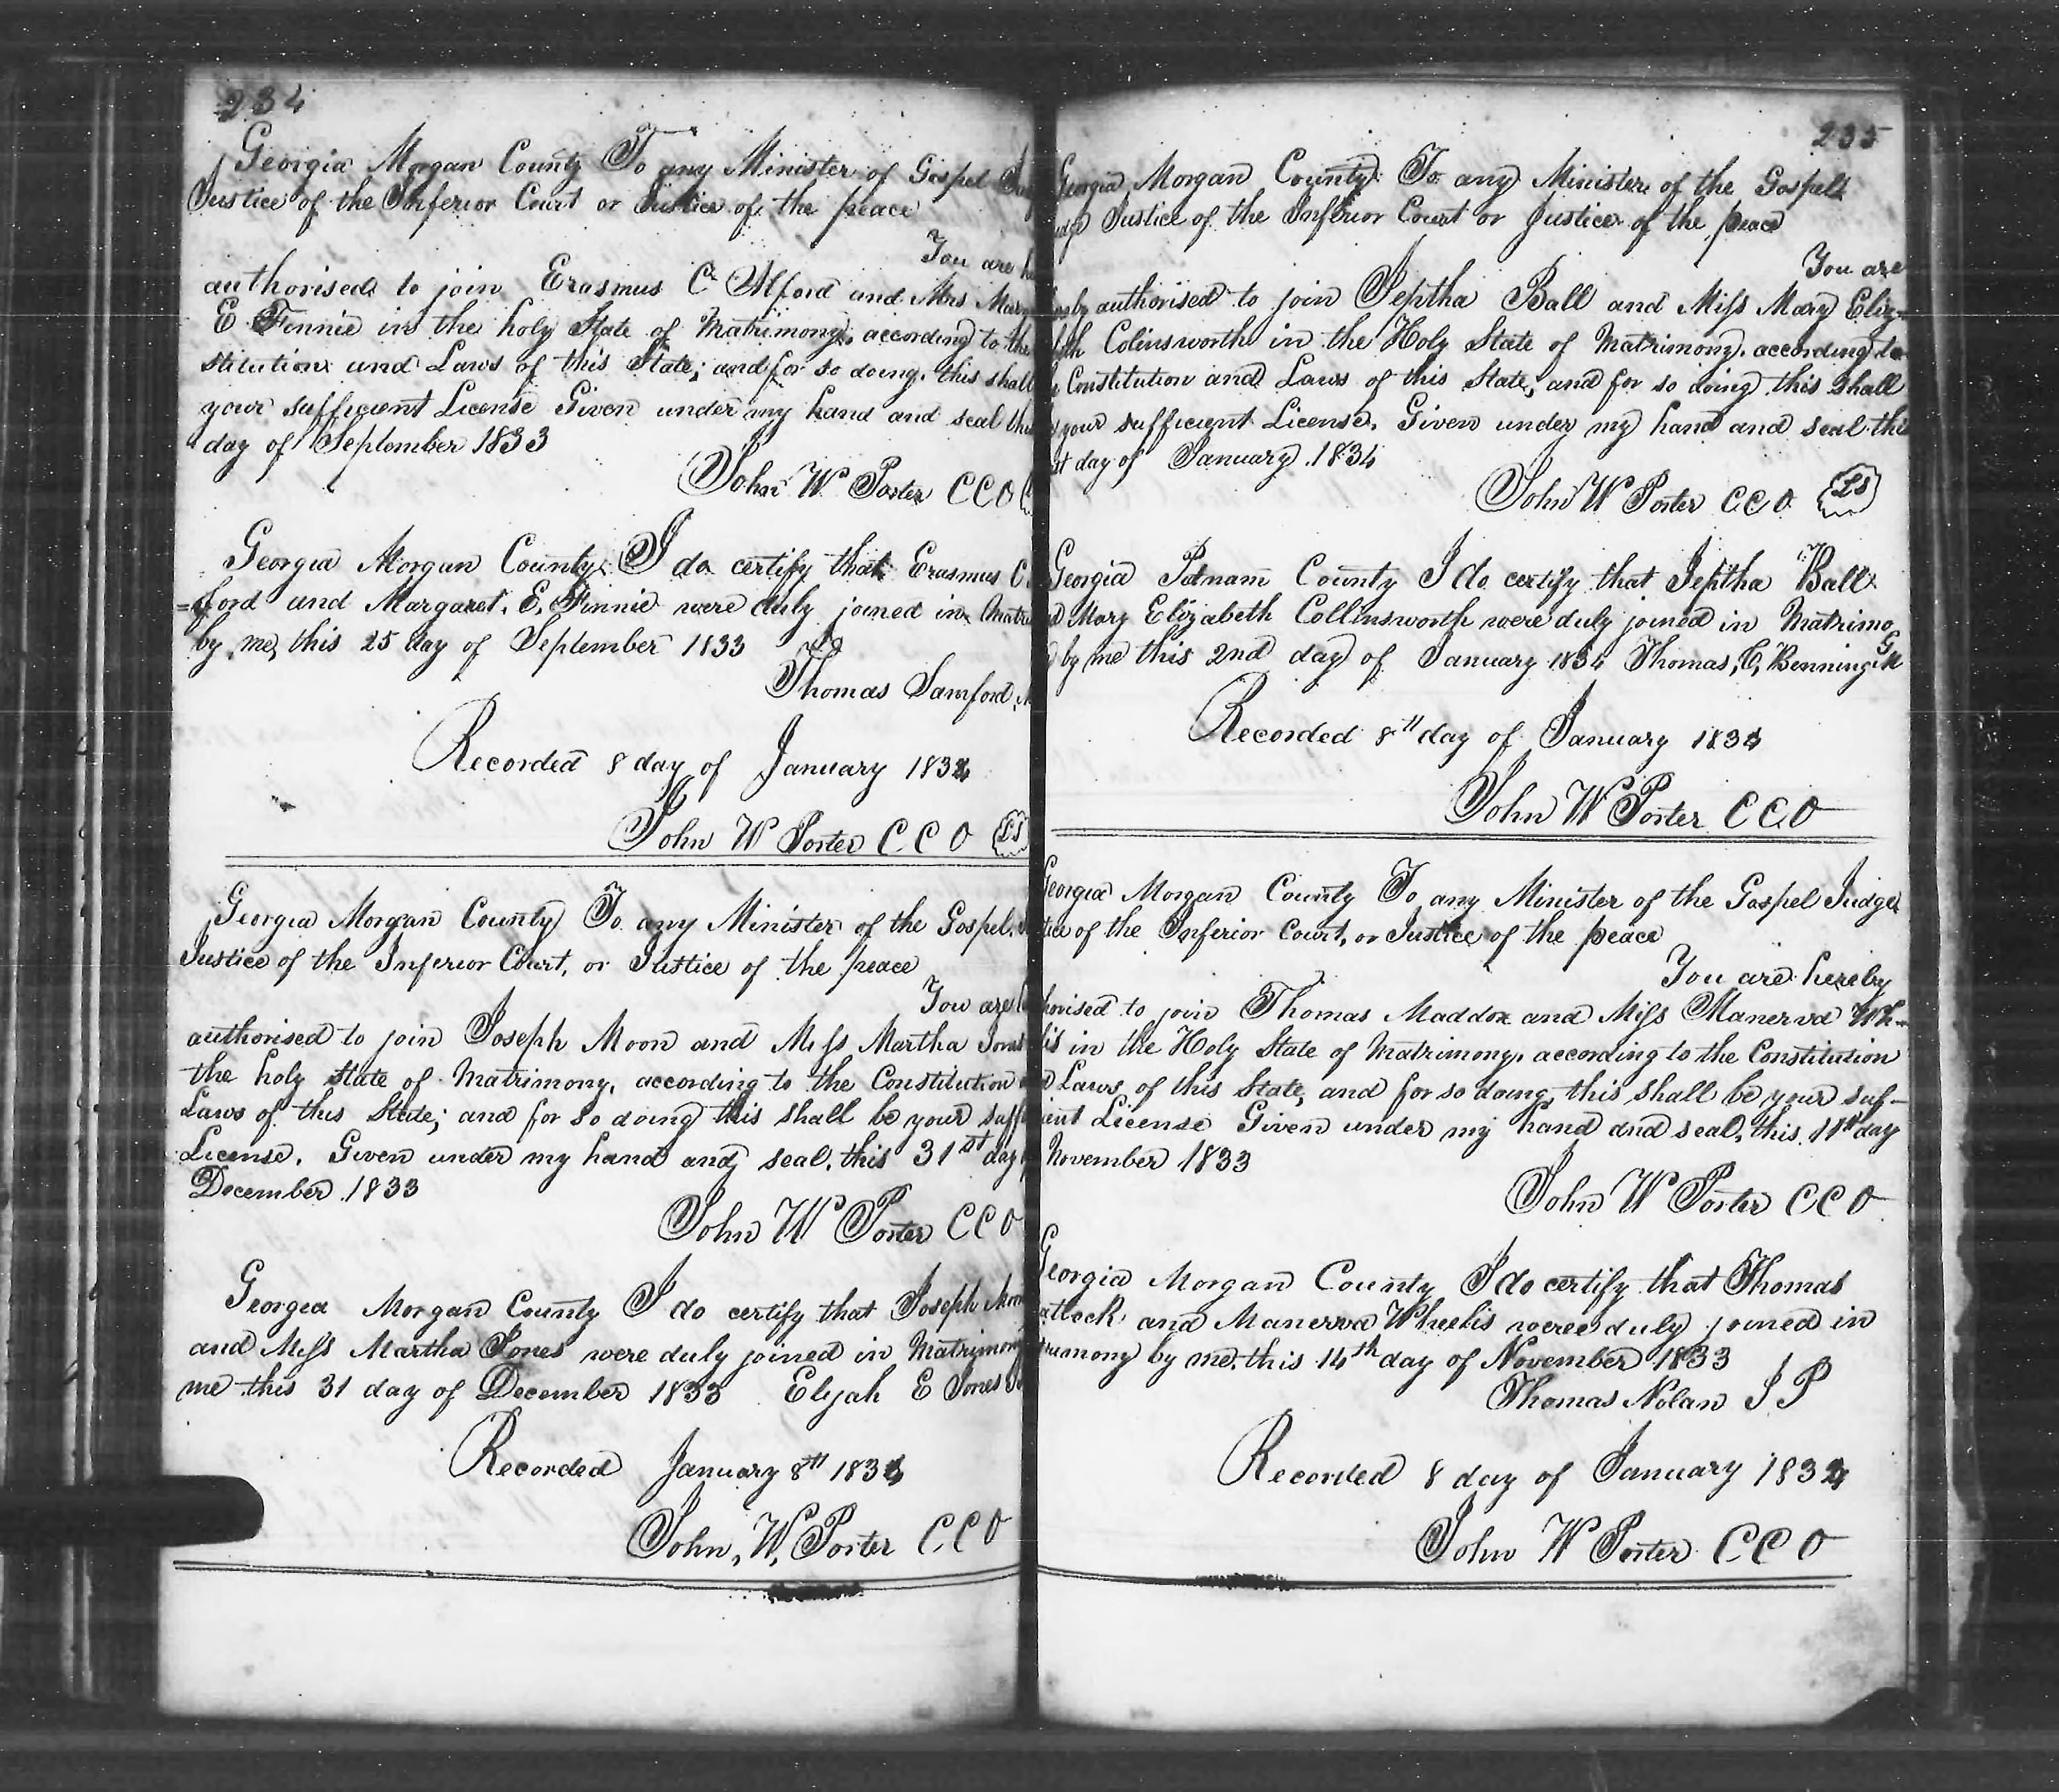 234
Georgia Morgan County To any Minister of Gospel
Justice of the Inferior Court or Justice of the peace
You are
authorised to join Erasmus C Alford and Mrs Mary
E Finnie in the holy State of Matrimony, according to the
stitution and Laws of this State; and for so doing, this shall
your sufficient License Given under my hand and seal this
day of September 1833
John W Porter CCO
Georgia Morgan County I do certify that Erasmus C
=ford and Margaret. E. Finnie were duly joined in Matri
by me, this 25 day of September 1833
Thomas Samford
Recorded 8 day of January 1834
John W Porter C C O LS
Georgia Morgan County To any Minister of the Gospel,
Justice of the Inferior Court, or Justice of the peace
You are
authorised to join Joseph Moon and Miss Martha Jones
the holy state of Matrimony, according to the Constitution
Laws of this State; and for so doing this shall be your suffi
License. Given under my hand and seal, this 31st day
December 1833
John W Porter CCO
Georgea Morgan County I do certify that Joseph Moon
and Miss Martha Jones were duly joined in Matrimony
me this 31 day of December 1833 Elijah E Jones
Recorded January 8th 1834
John, W, Porter C.C.O
235
Georgia Morgan County To any Minister of the Gospel
udge Justice of the Inferior Court or Justice of the peace
You are
reby authorised to join Jeptha Ball and Miss Mary Eliz-
beth Colinsworth in the Holy State of Matrimony, according to
Constitution and Laws of this State, and for so doing this shall
your sufficient License. Given under my hand and seal this
st day of January 1834
John W Porter CCO LS
Georgia Putnam County I do certify that Jeptha Ball
d Mary Elizabeth Collinsworth were duly joined in Matrimo
by me this 2nd day of January 1834 Thomas, C, Benning
Recorded 8th day of January 1834
John W Porter CCO
Georgia Morgan County To any Minister of the Gospel Judge
tice of the Inferior Court, or Justice of the peace
You are hereby
horised to join Thomas Maddox and Miss Manerva Wh-
lis in the Holy State of Matrimony, according to the Constitution
d Laws of this State, and for so doing this shall be your suf-
ient License Given under my hand and seal, this 11th day
November 1833
John W Porter CCO
Georgia Morgan County I do certify that Thomas
atlock and Manerva Wheelis were duly joined in
trimony by me, this 14th day of November 1833
Thomas Nolan J P
Recorded 8 day of January 1834
John W Porter CCO